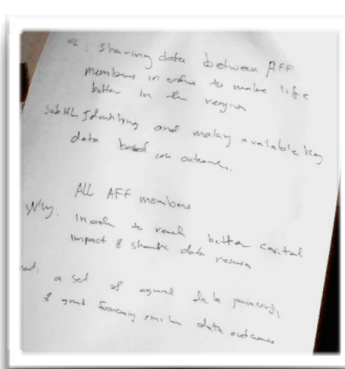 HL: Sharing data between AFF
members in order to make life
better in the region
SubHL Identifying and making available key
data based on outcomes.
ALL AFF members
Why. In order to reach better capital
impact & data
a set of agreed data
& data outcomes